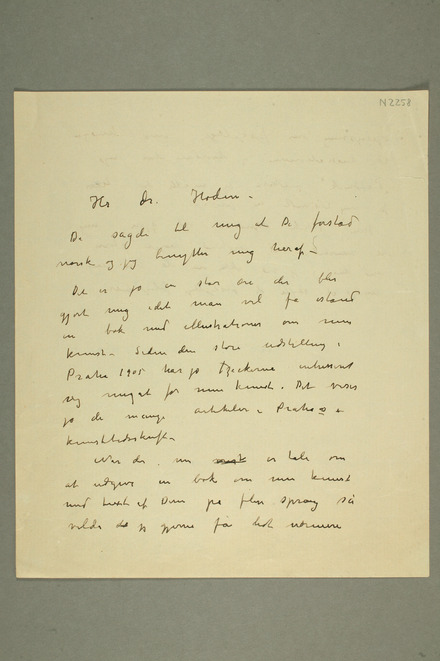 N 2258
Hr Dr. Hodin –
De sagde til mig at De forstod
norsk og jeg benytter mig heraf –
Det er jo en stor ære der blir
gjort mig idet man vil få istand
en bok med illustrationer om min
kunst – Siden den store udstilling i
Praha 1905 har jo Tjeckerne intressert
sig meget for min kunst. Det viser
jo de mange artikler i Praha's
kunsttidsskrift –
Når der nu er tale om
at udgive en bok om min kunst
med text af Dem på flere sprog så
vilde jeg gjerne få lidt nærmere